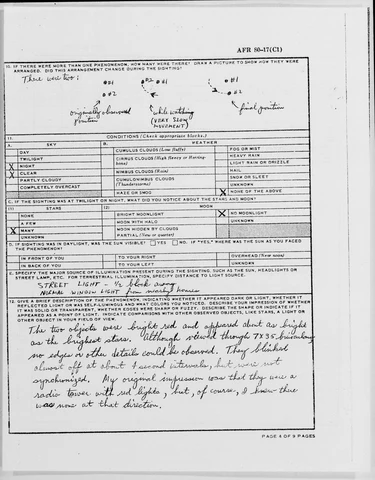 AFR 80-17(C1)
10. IF THERE WERE MORE THAN ONE PHENOMENON, HOW MANY WERE THERE? DRAW A PICTURE TO SHOW HOW THEY WERE
ARRANGED. DID THIS ARRANGEMENT CHANGE DURING THE SIGHTING?
There were two:
#1
#2
originally observed
position
#2 #1
while watching
(VERY SLOW
MOVEMENT)
#1
#2
final position
11. CONDITIONS (Check appropriate blocks.)
A. SKY B. WEATHER
DAY CUMULUS CLOUDS (Low fluffy) FOG OR MIST
TWILIGHT CIRRUS CLOUDS (High fleecy or Herring-bone) HEAVY RAIN
X NIGHT LIGHT RAIN OR DRIZZLE
X CLEAR NIMBUS CLOUDS (Rain) HAIL
PARTLY CLOUDY CUMULONIMBUS CLOUDS (Thunderstorms) SNOW OR SLEET
COMPLETELY OVERCAST UNKNOWN
HAZE OR SMOG X NONE OF THE ABOVE
C. IF THE SIGHTING WAS AT TWILIGHT OR NIGHT, WHAT DID YOU NOTICE ABOUT THE STARS AND MOON?
(1) STARS (2) MOON
NONE BRIGHT MOONLIGHT X NO MOONLIGHT
A FEW MOON WITH HALO UNKNOWN
X MANY MOON HIDDEN BY CLOUDS
UNKNOWN PARTIAL (New or quarter)
D. IF SIGHTING WAS IN DAYLIGHT, WAS THE SUN VISIBLE? YES NO. IF "YES," WHERE WAS THE SUN AS YOU FACED
THE PHENOMENON?
IN FRONT OF YOU TO YOUR RIGHT OVERHEAD (Near noon)
IN BACK OF YOU TO YOUR LEFT UNKNOWN
E. SPECIFY THE MAJOR SOURCE OF ILLUMINATION PRESENT DURING THE SIGHTING, SUCH AS THE SUN, HEADLIGHTS OR
STREET LAMP, ETC. FOR TERRESTRIAL ILLUMINATION, SPECIFY DISTANCE TO LIGHT SOURCE.
STREET LIGHT - 1/2 block away
NORMAL WINDOW LIGHT from nearby house
12. GIVE A BRIEF DESCRIPTION OF THE PHENOMENON, INDICATING WHETHER IT APPEARED DARK OR LIGHT, WHETHER IT
REFLECTED LIGHT OR WAS SELF-LUMINOUS AND WHAT COLORS YOU NOTICED. DESCRIBE YOUR IMPRESSION OF WHETHER
IT WAS SOLID OR TRANSPARENT, WHETHER EDGES WERE SHARP OR FUZZY. DESCRIBE THE SHAPE OR INDICATE IF IT
APPEARED AS A POINT OF LIGHT. INDICATE COMPARISONS WITH OTHER OBSERVED OBJECTS, LIKE STARS, A LIGHT OR
OTHER OBJECT IN YOUR FIELD OF VIEW.
The two objects were bright red and appeared about as bright
as the brightest stars. Although viewed through 7X35 binoculars,
no edges or other details could be observed. They blinked
almost off at about 1 second intervals, but were not
synchronized. My original impression was that they were a
radio tower with red lights, but, of course, I knew there
was none at that direction.
PAGE 4 OF 9 PAGES